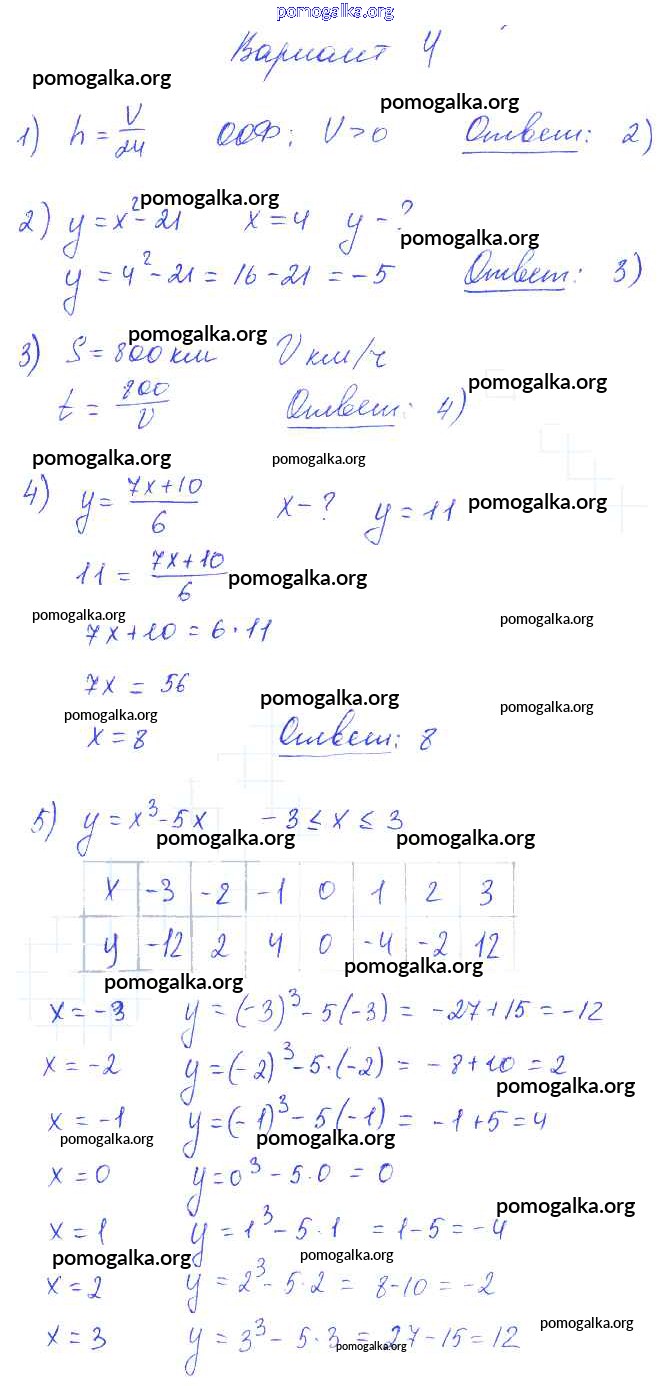 pomogalka.org
Вариант 4
pomogalka.org
pomogalka.org
1) h = V/24 ООФ; V > 0 Ответ: 2)
pomogalka.org
2) y = x² - 21 x = 4 y - ?
pomogalka.org
y = 4² - 21 = 16 - 21 = -5 Ответ: 3)
pomogalka.org
3) S = 800 км V км/ч
pomogalka.org
t = 800/V Ответ: 4)
pomogalka.org pomogalka.org
4) y = (7x+10)/6 x - ? y = 11 pomogalka.org
11 = (7x+10)/6 pomogalka.org
pomogalka.org pomogalka.org
7x + 10 = 6 · 11
7x = 56
pomogalka.org pomogalka.org
pomogalka.org
x = 8 Ответ: 8
5) y = x³ - 5x -3 ≤ x ≤ 3
pomogalka.org pomogalka.org
x -3 -2 -1 0 1 2 3
y -12 2 4 0 -4 -2 12
pomogalka.org
pomogalka.org
x = -3 y = (-3)³ - 5(-3) = -27 + 15 = -12
x = -2 y = (-2)³ - 5·(-2) = -8 + 10 = 2
pomogalka.org
x = -1 y = (-1)³ - 5(-1) = -1 + 5 = 4
pomogalka.org pomogalka.org
x = 0 y = 0³ - 5·0 = 0
pomogalka.org
x = 1 y = 1³ - 5·1 = 1 - 5 = -4
pomogalka.org pomogalka.org
x = 2 y = 2³ - 5·2 = 8 - 10 = -2
pomogalka.org
x = 3 y = 3³ - 5·3 = 27 - 15 = 12
pomogalka.org